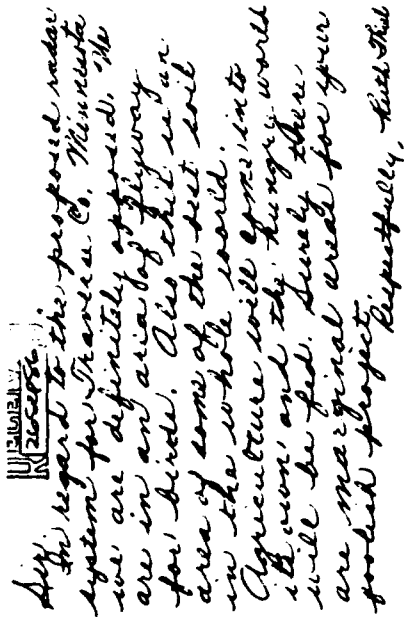 Sir,
In regard to the proposed radar
system for Traverse Co. Minnesota
we are definitely opposed. We
are in an area of flyway
for birds. Also this is an
area of some of the best soil
in the whole world.
Agriculture will come into
its own and the hungry world
will be fed. Surely there
are marginal areas for your
foolish project.
Respectfully, Ruth Thiel